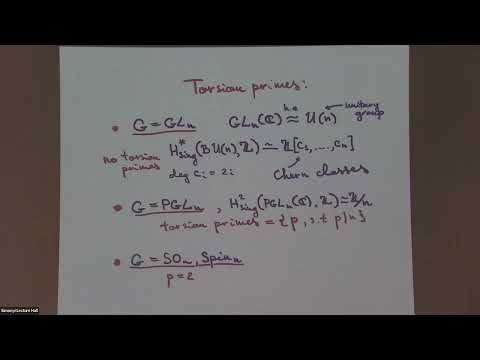 Torsion primes:
• G = GLₙ GLₙ(ℂ) h.e ≈ U(n) unitary group
no torsion primes H*sing(BU(n), ℤ) ≃ ℤ[c₁, ..., cₙ]
deg cᵢ = 2i Chern classes
• G = PGLₙ , H²sing(PGLₙ(ℂ), ℤ) ≃ ℤ/n
torsion primes = {p, s.t p|n}
• G = SOₙ, Spinₙ
p = 2
Simonyi Lecture Hall